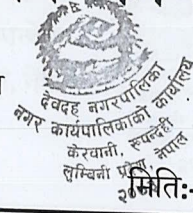 देवदह नगरपालिका
नगर कार्यपालिकाको कार्यालय
केरवानी, रुपन्देही
लुम्बिनी प्रदेश, नेपाल
मिति:-